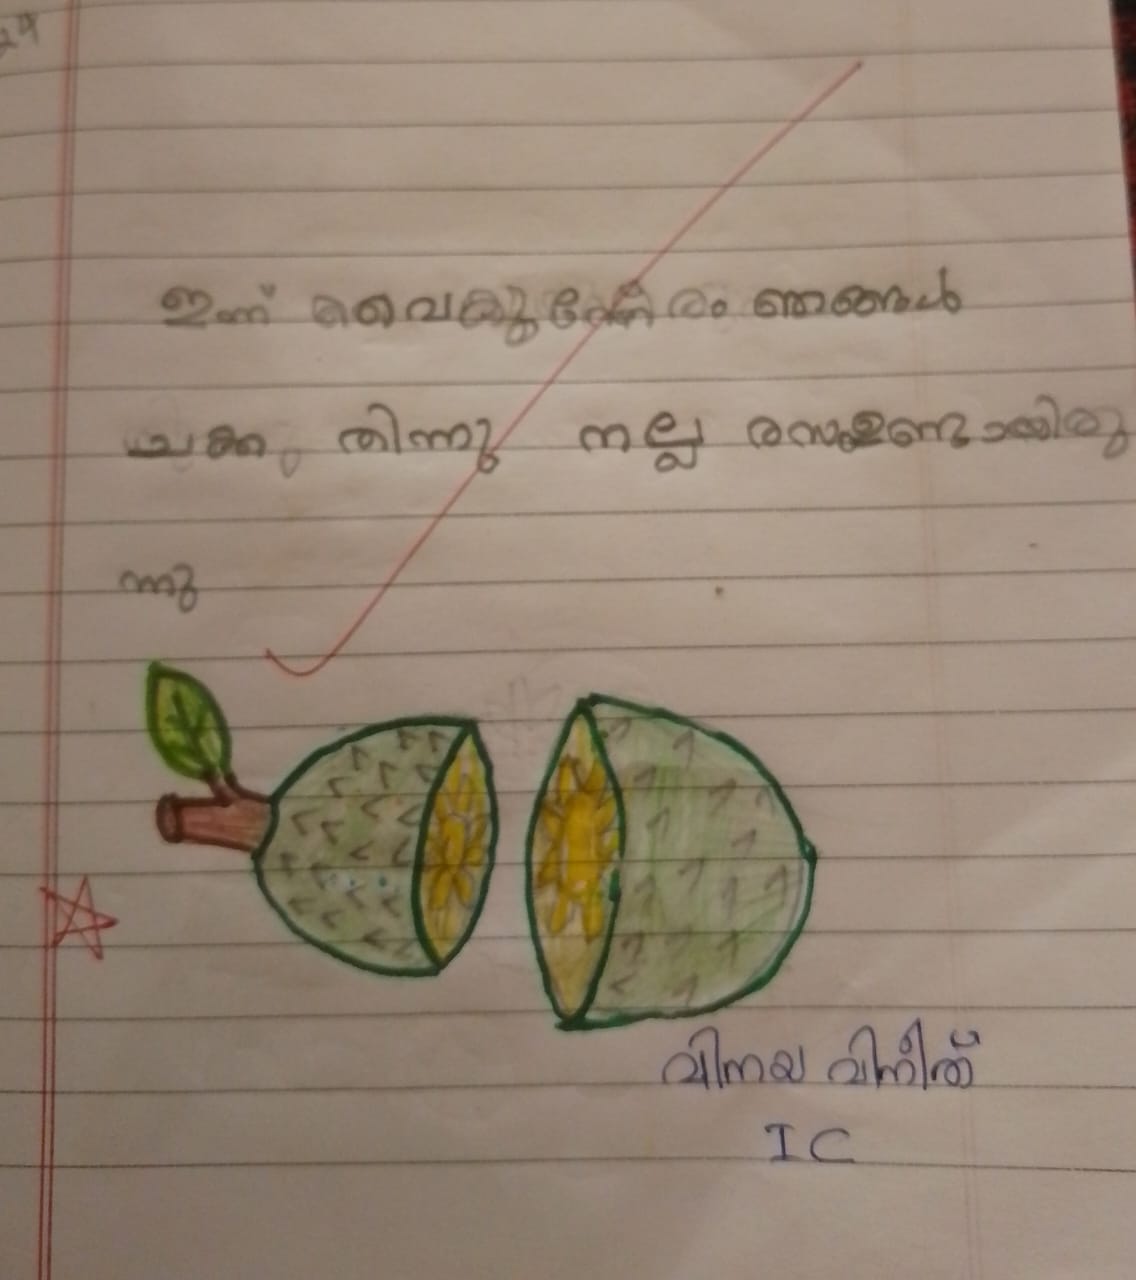 24
ഇന്ന് വൈകുന്നേരം ഞങ്ങൾ
ചക്ക തിന്നു നല്ല രസമുണ്ടായിരു
ന്നു
വിനയ വിനീത്
I C